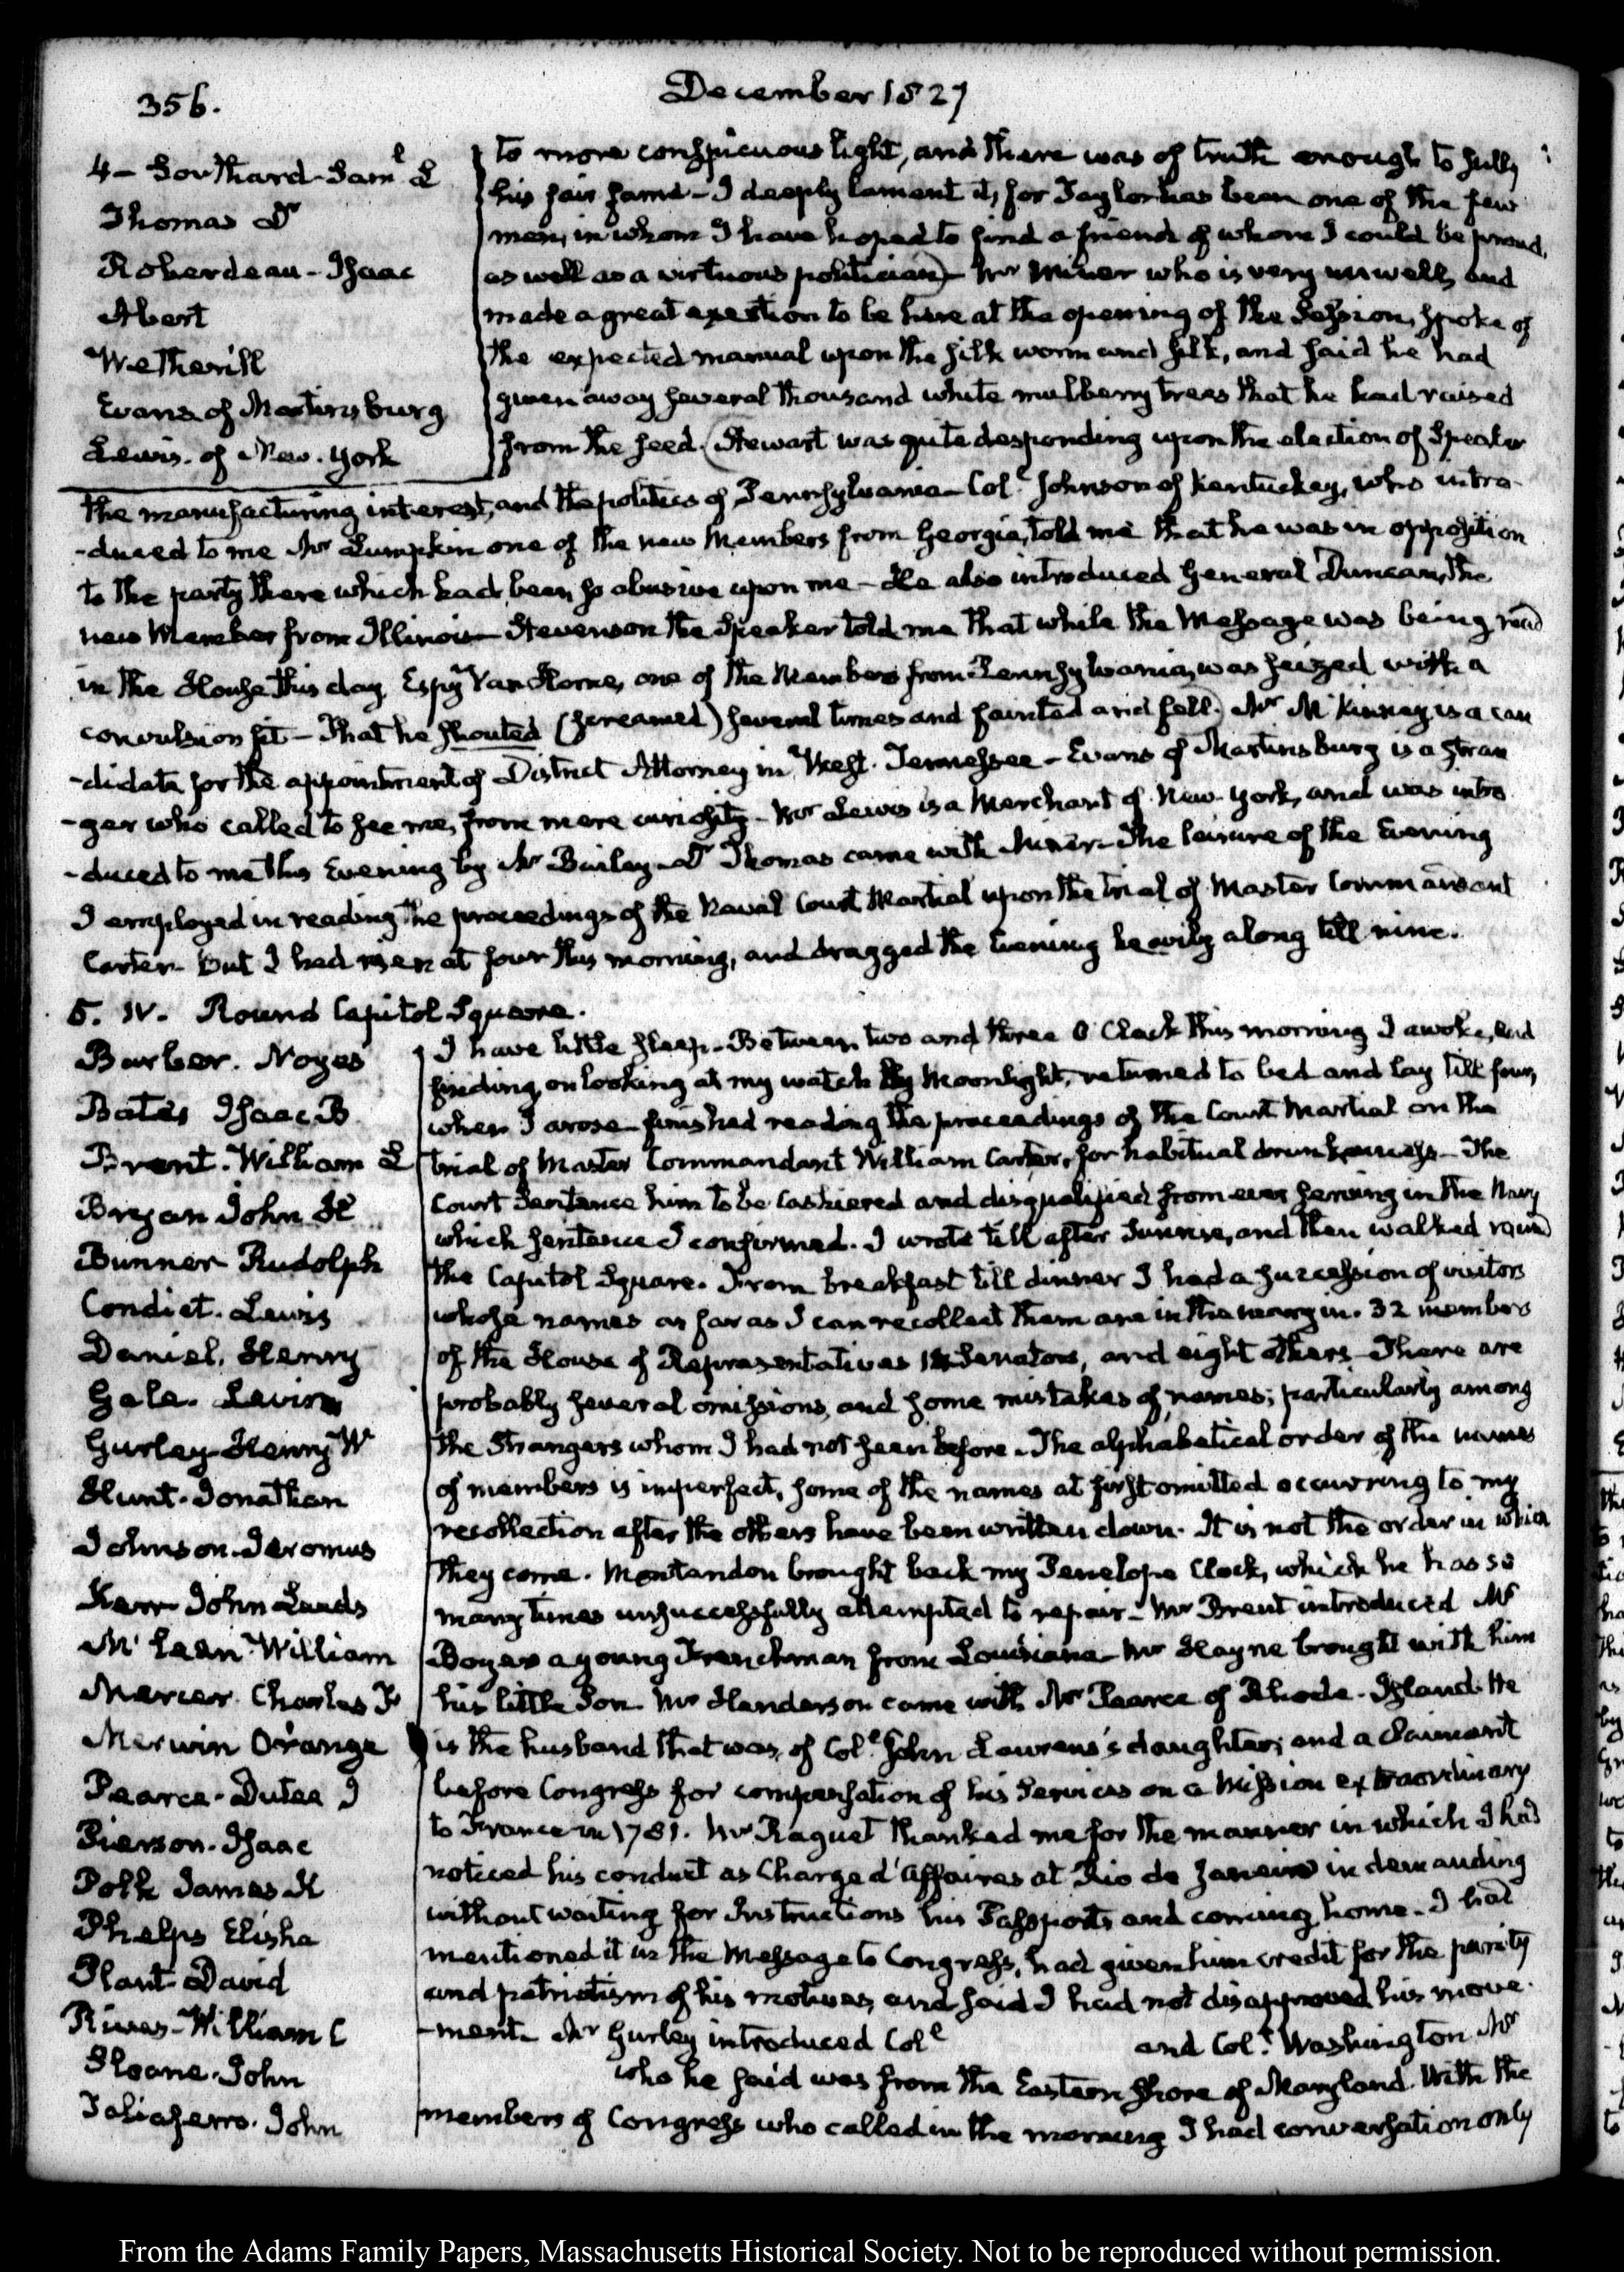 356.
December 1827
4 – Southard Saml. L
Thomas Dr
Roberdeau – Isaac
Abert
Wetherill
Evans of Martinsburg
Lewis. of New. York
to more conspicuous light, and there was of truth enough to sully
his fair fame – I deeply lament it, for Taylor has been one of the few
men, in whom I have hoped to find a friend of whom I could be proud,
as well as a virtuous politician) – Mr Miner who is very unwell, and
made a great exertion to be here at the opening of the Session, spoke of
the expected manual upon the silk worm and silk, and said he had
given away several thousand white mulberry trees that he had raised
from the seed. (Stewart was quite desponding upon the election of Speaker
the manufacturing interest, and the politics of Pennsylvania – Coll. Johnson of Kentucky, who intro-
-duced to me Mr Lumpkin one of the new Members from Georgia, told me that he was in opposition
to the party there which had been so abusive upon me – He also introduced General Duncan, the
new Member from Illinois – Stevenson the Speaker told me that while the Message was being read
in the House this day, Espy Van Horne, one of the Members from Pennsylvania, was seized with a
convulsion fit – That he shouted (screamed) several times and fainted and fell.) Mr McKinney is a can
-didate for the appointment of District Attorney in West. Tennessee – Evans of Martinsburg is a stran
-ger who called to see me, from mere curiosity – Mr Lewis is a Merchant of New-York, and was intro
-duced to me this Evening by Mr Bailey – Dr Thomas came with Miner – The leisure of the Evening
I employed in reading the proceedings of the Naval Court Martial upon the trial of Master Commandant
Carter – But I had risen at four this morning, and dragged the Evening heavily along till nine.
5. IV. Round Capitol Square.
Barber. Noyes
Bates Isaac B
Brent. William L
Bryan John H
Bunner Rudolph
Condict. Lewis
Daniel. Henry
Gale. Levin
Gurley Henry W
Hunt. Jonathan
Johnson. Jeromus
Kerr John Leeds
McLean William
Mercer. Charles F
Merwin Orange
Pearce. Dutee J
Pierson. Isaac
Polk James K
Phelps Elisha
Plant David
Rives – William C
Sloane. John
Taliaferro. John
I have little sleep – Between two and three O'Clock this morning I awoke, and
finding, on looking at my watch by Moonlight, returned to bed and lay till four,
when I arose – finished reading the proceedings of the Court Martial on the
trial of Master Commandant William Carter, for habitual drunkenness – The
Court sentence him to be Cashiered and disqualified from ever serving in the Navy
which sentence I confirmed. I wrote till after Sunrise, and then walked round
the Capitol Square. From breakfast till dinner I had a succession of visitors
whose names as far as I can recollect them are in the margin. 32 members
of the House of Representatives Senators, and eight others – There are
probably several omissions, and some mistakes of names; particularly among
the Strangers whom I had not seen before – The alphabetical order of the names
of members is imperfect, some of the names at first omitted occurring to my
recollection after the others have been written down. It is not the order in which
they come. Montandon brought back my Penelope Clock, which he has so
many times unsuccessfully attempted to repair – Mr Brent introduced Mr
Boyer a young Frenchman from Louisiana – Mr Hayne brought with him
his little Son. Mr Henderson came with Mr Pearce of Rhode-Island. He
is the husband that was, of Coll. John Laurens's daughter; and a Claimant
before Congress for compensation of his Services on a Mission extraordinary
to France in 1781. Mr Raguet thanked me for the manner in which I had
noticed his conduct as Chargé d'affaires at Rio de Janeiro in demanding
without waiting for Instructions his Passports and coming home – I had
mentioned it in the Message to Congress, had given him credit for the purity
and patriotism of his motives, and said I had not disapproved his move-
-ment. Mr Gurley introduced Coll and Coll. Washington Mr
who he said was from the Eastern Shore of Maryland. With the
members of Congress who called in the morning I had conversation only
From the Adams Family Papers, Massachusetts Historical Society. Not to be reproduced without permission.